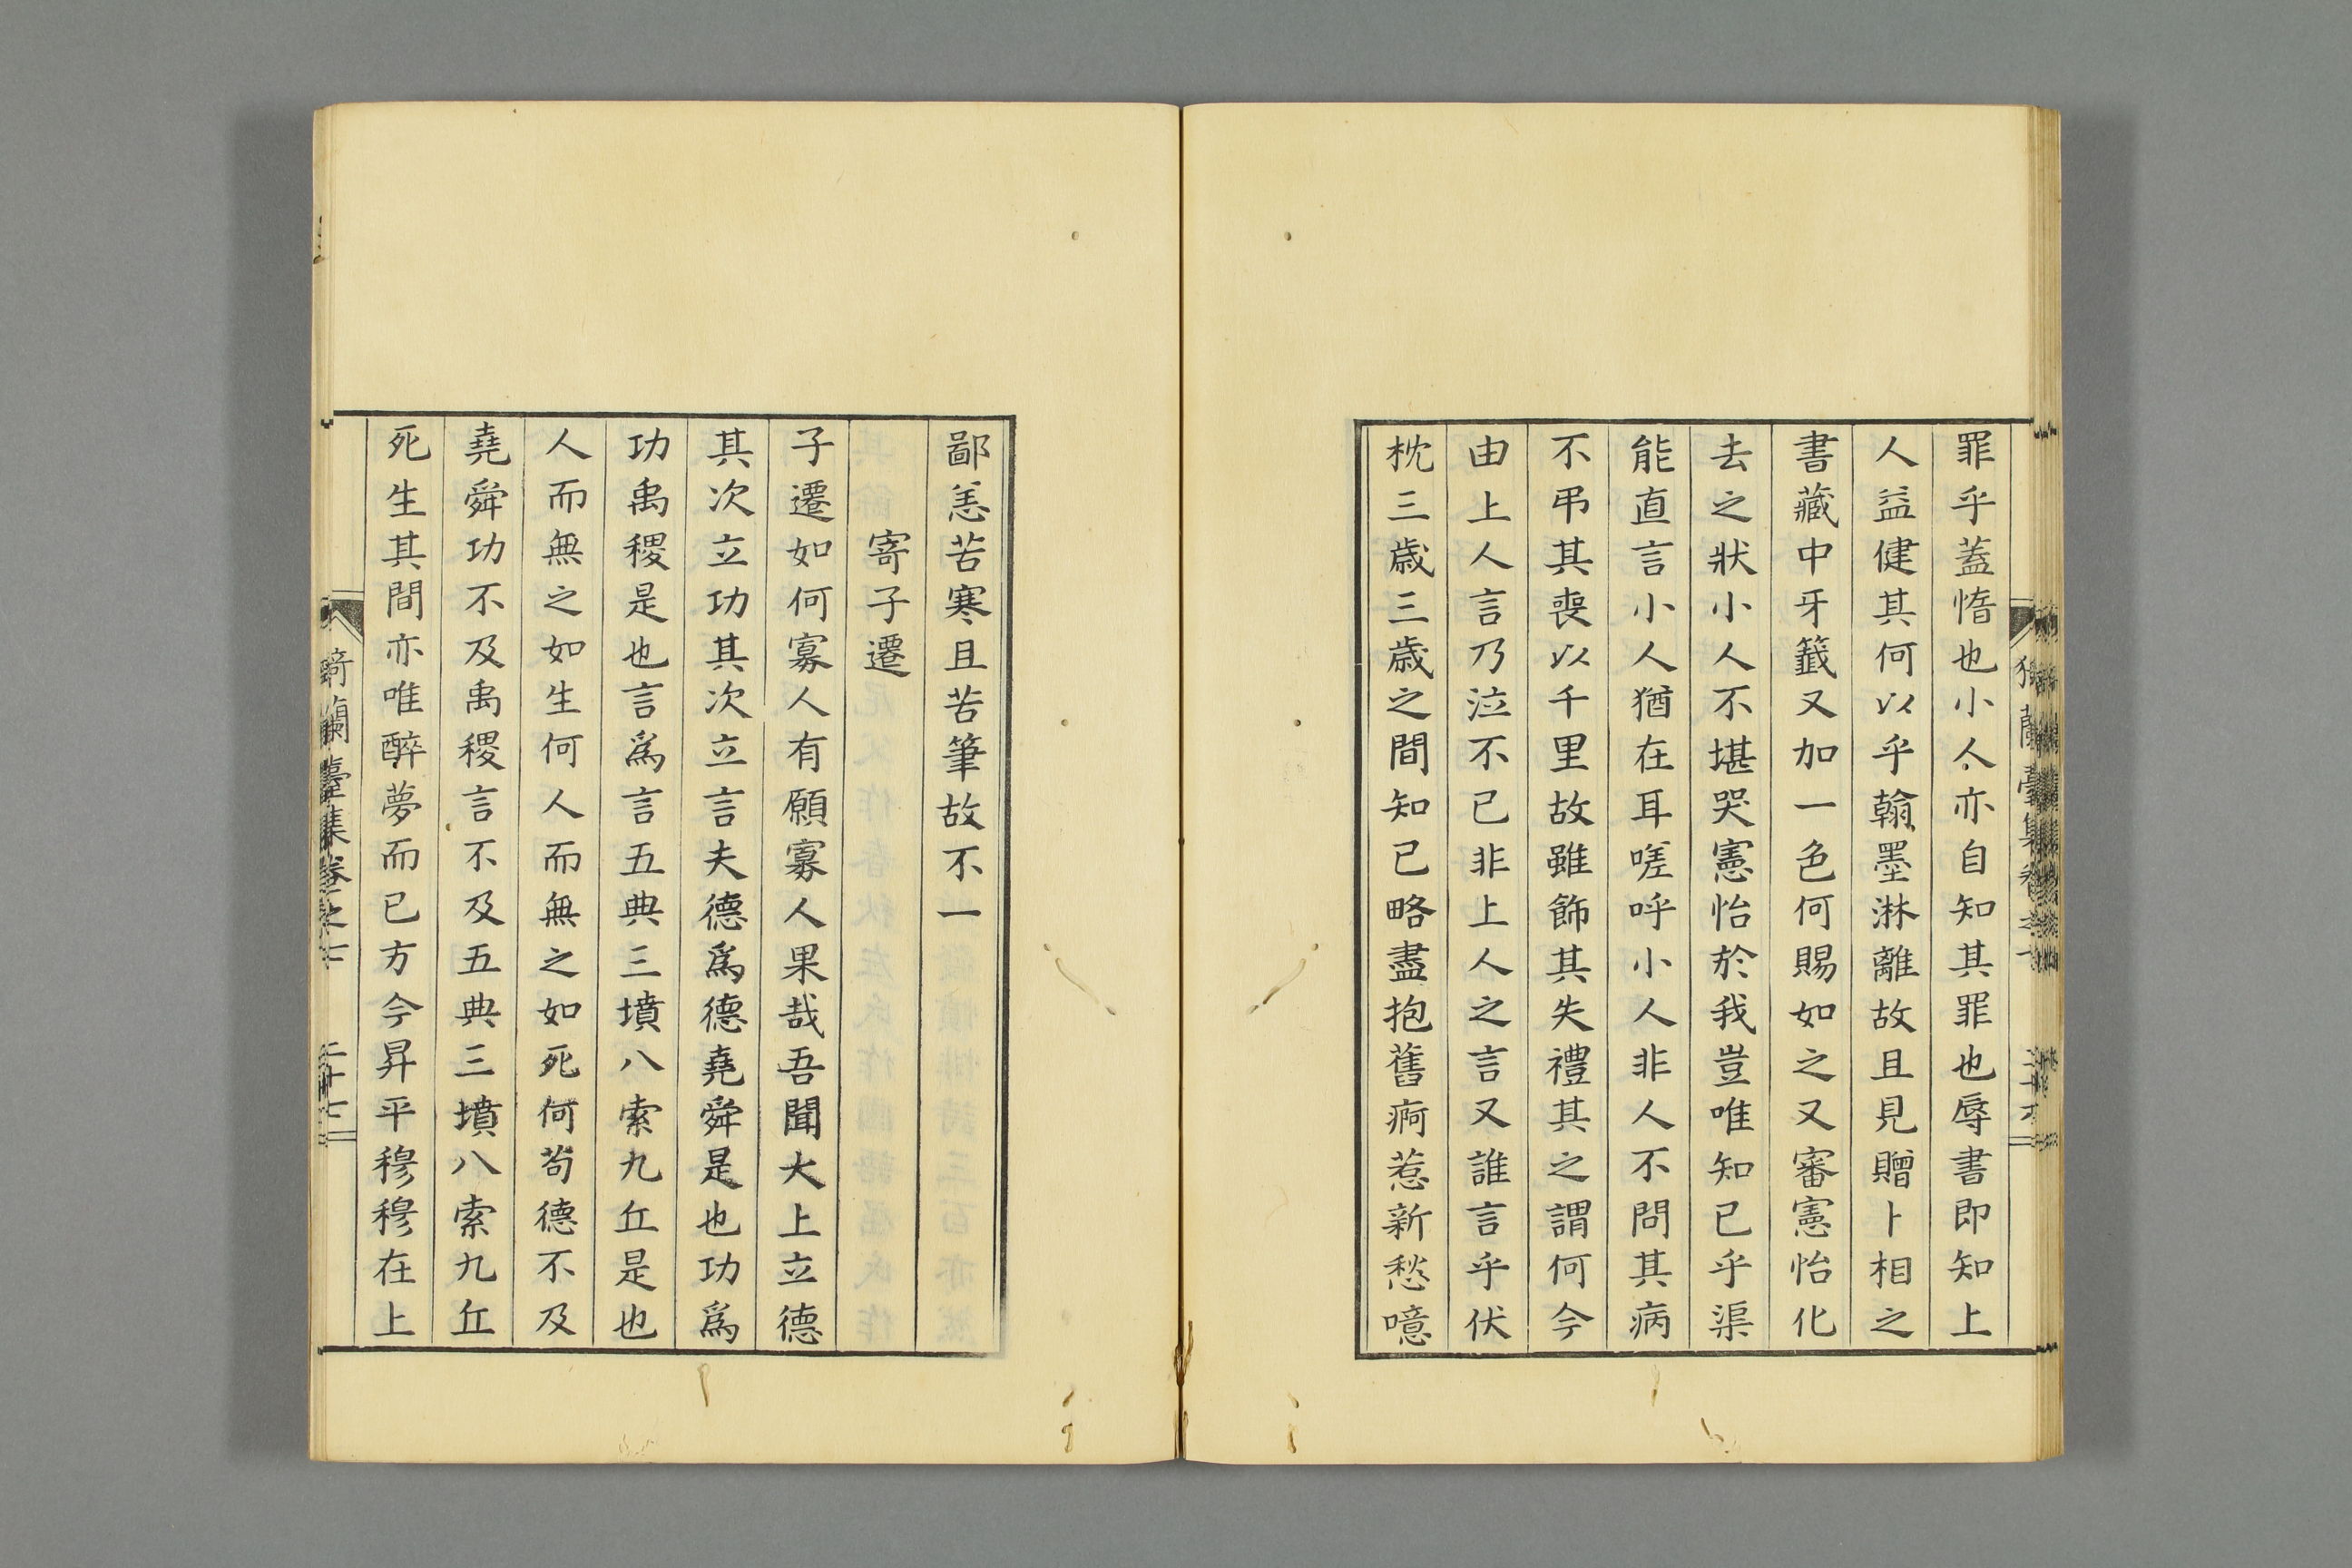 罪乎蓋惰也小人亦自知其罪也辱書即知上
人益健其何以乎翰墨淋離故且見贈卜相之
書藏中牙籤又加一色何賜如之又審憲怡化
去之狀小人不堪哭憲怡於我豈唯知已乎渠
能直言小人猶在耳嗟呼小人非人不問其病
不弔其喪以千里故雖飾其失禮其之謂何今
由上人言乃泣不已非上人之言又誰言乎伏
枕三歲三歲之間知已略盡抱舊痾惹新愁噫
鄙恙苦寒且苦筆故不一
寄子遷
子遷如何寡人有願寡人果哉吾聞大上立德
其次立功其次立言夫德爲德堯舜是也功爲
功禹稷是也言爲言五典三墳八索九丘是也
人而無之如生何人而無之如死何苟德不及
堯舜功不及禹稷言不及五典三墳八索九丘
死生其間亦唯醉夢而已方今昇平穆穆在上
蘭臺集卷之七